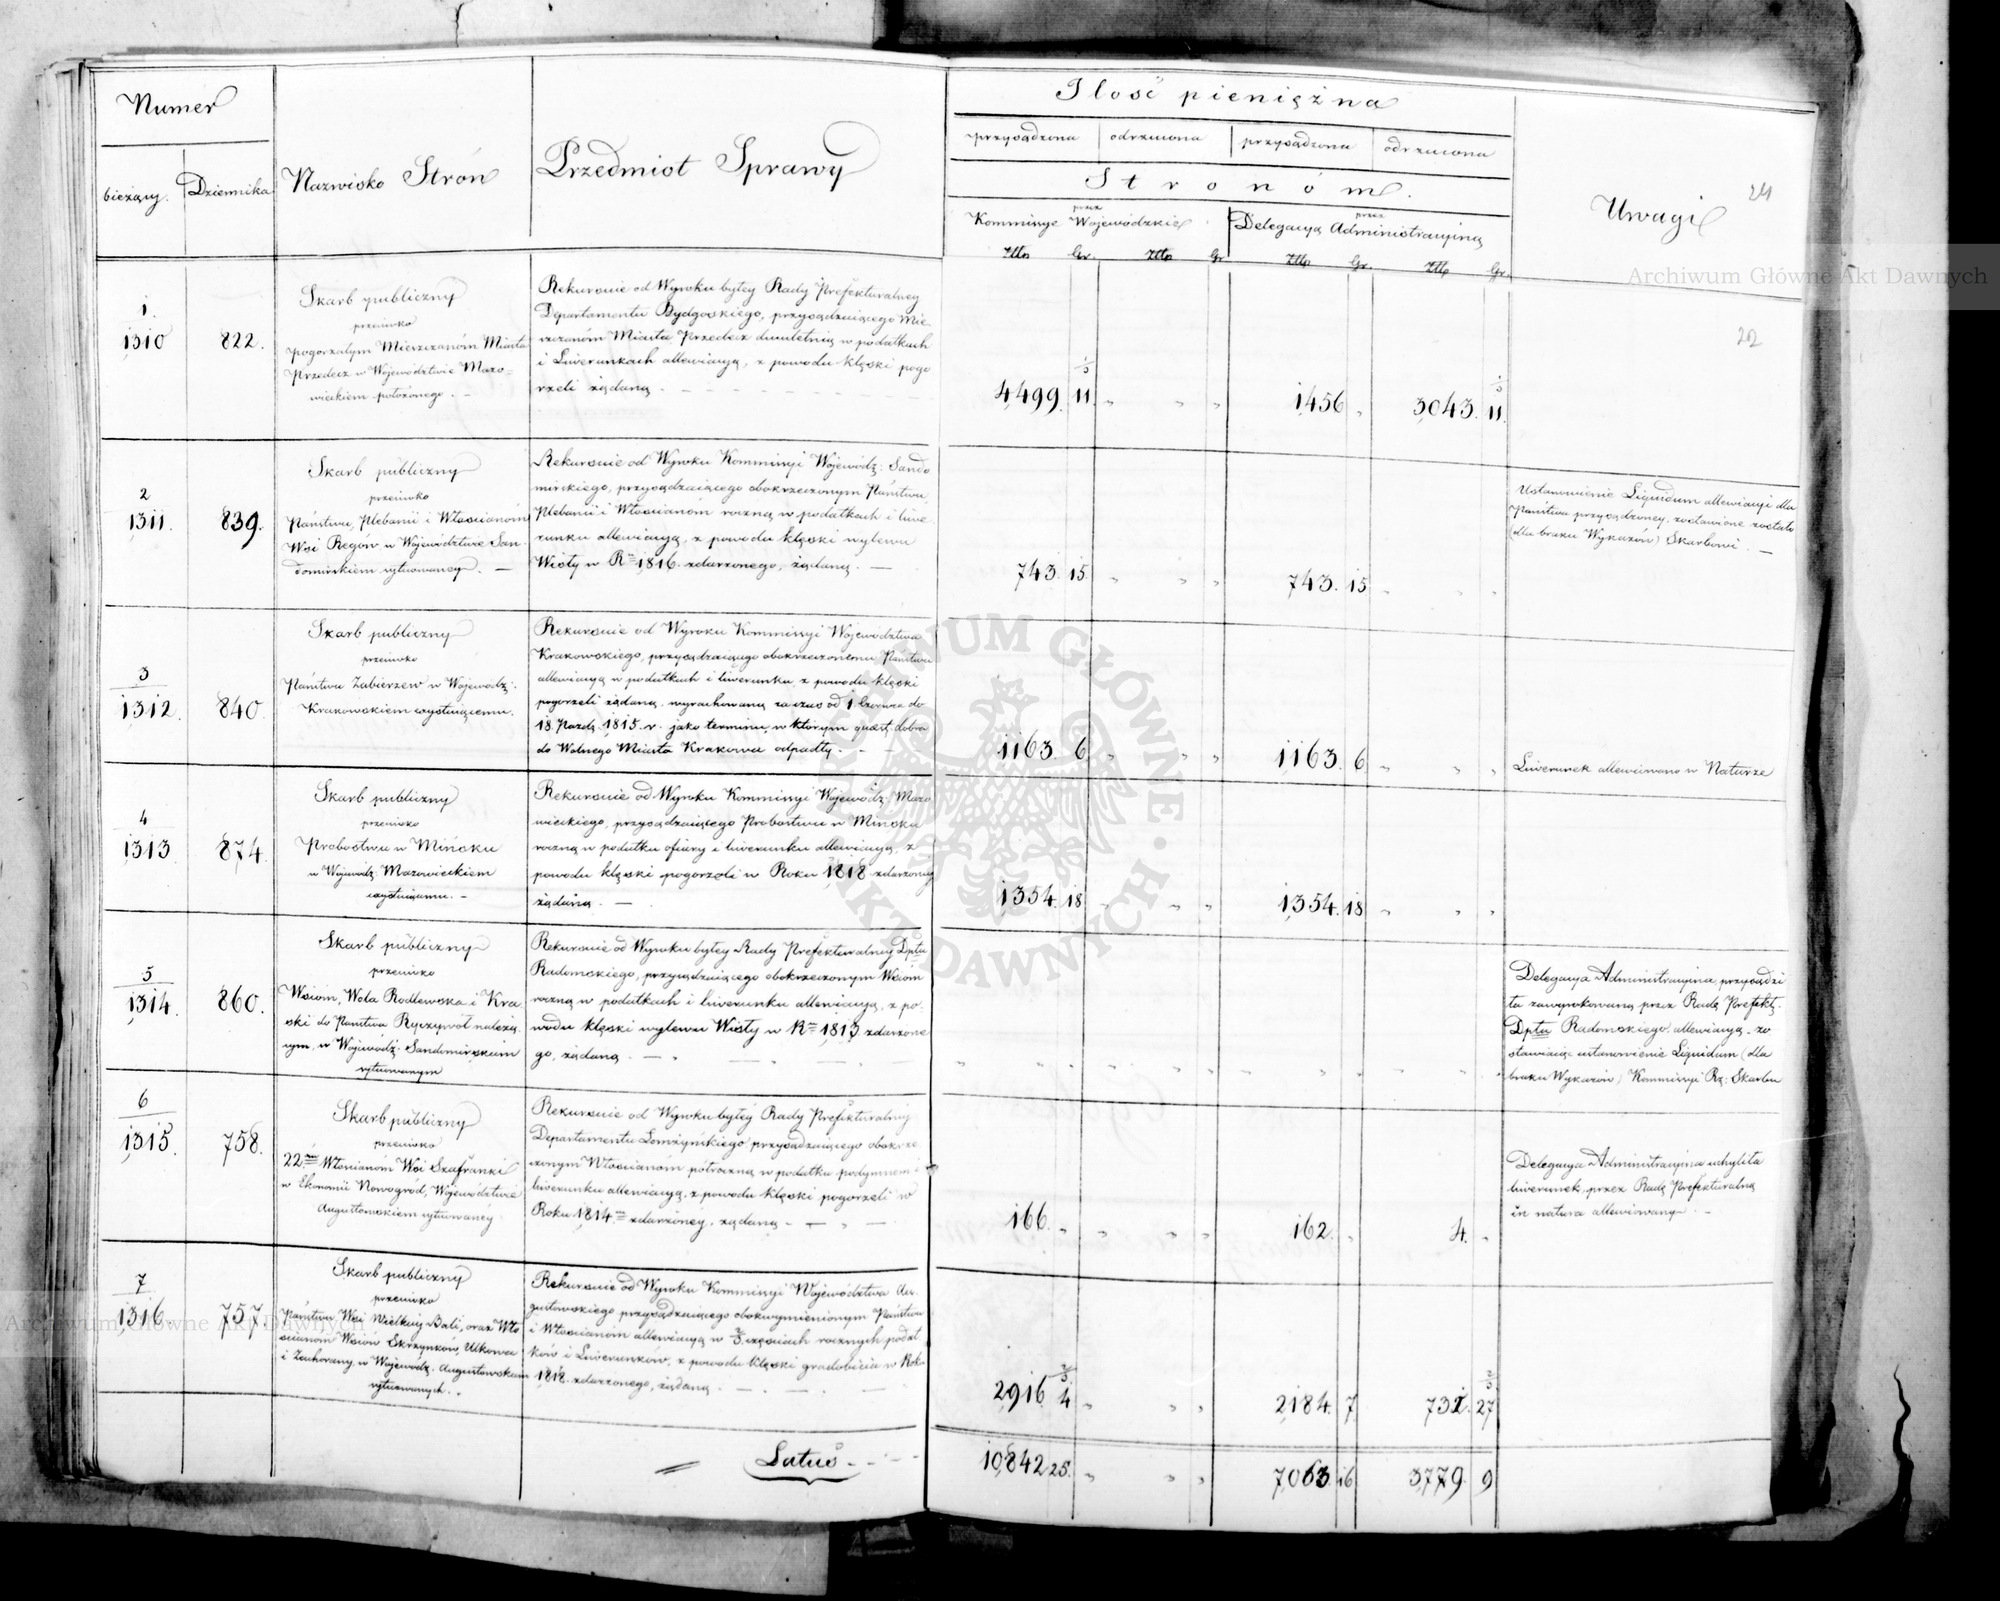 Numer
bieżący.
Dziennika
Nazwisko Strón
Przedmiot Sprawy
Ilość pieniężna
przysądzona
odrzucona
przysądzona
odrzucona
Stronóm.
przez
Kommissye Wojewódzkie
przez
Delegacyą Administracyiną
Złtp Gr. Złtp Gr Złtp Gr. Złtp Gr.
Uwagi
24
22
1.
1310
822.
Skarb publiczny
przeciwko
pogorzałym Mieszczanóm Miasta
Przedecz w Województwie Mazo=
wieckiem położonego. -
Rekursie od Wyroku byłey Rady Prefekturalney
Departamentu Bydgoskiego, przysądzaiącego Mie-
szczanóm Miasta Przedecz dwuletnią w podatkach
i Liwerunkach allewiacyą, z powodu klęski pogo
rzeli żądaną
4,499. 11 1/3
1,456
3,043. 11 1/3
2
1311.
839.
Skarb publiczny
przeciwko
Państwu, Plebanii i Włościanóm
Wsi Regów w Województwie San-
domirskiem sytuowaney. —
Rekursie od Wyroku Kommissyi Wojewódz: Sando
mirskiego, przysądzaiącego obokrzeczonym Państwu,
Plebanii i Włościanom roczną w podatkach i liwe-
runku allewiacyą, z powodu klęski wylewu
Wisły w R= 1816. zdarzonego, żądaną. —
743. 15
743. 15
Ustanowienie Liquidum allewiacyi dla
Państwa przysądzoney, zostawione zostało
(dla braku Wykazów) Skarbowi. —
3
1312.
840.
Skarb publiczny
przeciwko
Państwu Zabierzew w Wojewódz:
Krakowskiem exystuiącemu.
Rekursie od Wyroku Kommissyi Województwa
Krakowskiego, przysądzaiącego obokrzeczonemu Państwu
allewiacyą w podatkach i liwerunku, z powodu klęski
pogorzeli żądaną, wyrachowaną za czas od 1. Czerwca do
18. Pazdz. 1815. r. jako terminu, w którym quaest. dobra
do Wolnego Miasta Krakowa odpadły. -
1163 6
1163. 6
Liwerunek allewiowano w Naturze
4
1313
874
Skarb publiczny
przeciwko
Probostwu w Mińsku
w Wojewódz: Mazowieckiem
exystuiącemu. -
Rekursie od Wyroku Kommissyi Wojewódz: Mazo
wieckiego, przysądzaiącego Probostwu w Mińsku
roczną w podatku ofiary i liwerunku allewiacyą, z
powodu klęski pogorzeli w Roku 1818 zdarzoney
żądaną. —
1,354. 18
1,354. 18
5
1314
860.
Skarb publiczny
przeciwko
Wsiom, Wola Rodlewska i Kra
ski do Państwa Ryczywół należą
cym, w Wojewódz: Sandomirskiem
sytuowanym
Rekursie od Wyroku byłey Rady Prefekturalney Dptu
Radomskiego, przysądzaiącego obokrzeczonym Wsiom
roczną w podatkach i liwerunku allewiacyą, z po-
wodu klęski wylewu Wisły w R= 1813 zdarzone
go, żądaną. —
Delegacya Administracyina, przysądzi
ła zawyrokowaną przez Radę Prefekt.
Dptu Radomskiego, allewiacyą, zo
stawiaiąc ustanowienie Liquidum (dla
braku Wykazów) Kommissyi Rz: Skarbu
6
1315.
758.
Skarb publiczny
przeciwko
22 Włościanóm Wsi Szafranki
w Ekonomii Nowogród, Województwie
Augustowskiem sytuowaney
Rekursie od Wyroku byłey Rady Prefekturalney
Departamentu Łomżyńskiego przysądzaiącego obokrze-
czonym Włościanóm półroczną w podatku podymnem i
liwerunku allewiacyą, z powodu klęski pogorzeli w
Roku 1814 zdarzoney, żądaną. —
166.
162.
4.
Delegacya Administracyina uchyliła
liwerunek, przez Radę Prefekturalną
in natura allewiowany. -
7
1316.
757.
Skarb publiczny
przeciwko
Państwu Wsi Wielkiey Bali, oraz Wło
ścianom Wsiów Skrzynków, Ulkowca
i Zachorany, w Wojewódz: Augustowskiem
sytuowanych. -
Rekursie od Wyroku Kommissyi Województwa Au-
gustowskiego przysądzaiącego obokwymienionym Państwu
i Włościanóm allewiacyą w 2/3 częściach rocznych podat-
ków i Liwerunków, z powodu klęski gradobicia w Roku
1818. zdarzonego, żądaną. —
2,916 4 2/3
2,184. 7
731. 27 2/3
Latus
10,842 25.
7,063. 16
3,779. 9
Archiwum Główne Akt Dawnych
Archiwum Główne Akt Dawnych
ARCHIWUM GŁÓWNE · AKT DAWNYCH ·